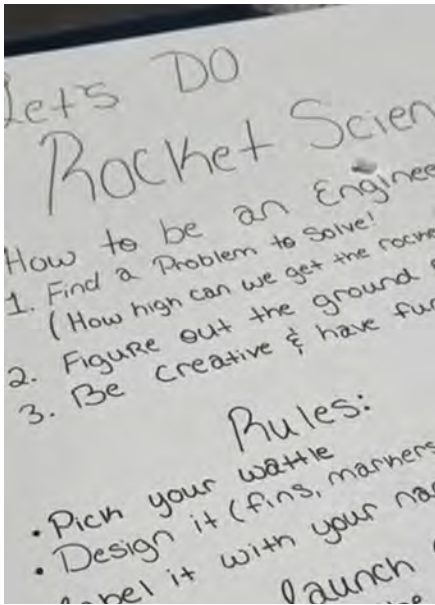 Let's DO
Rocket Scien
How to be an Enginee
1. Find a Problem to Solve!
(How high can we get the rocke
2. Figure out the ground
3. Be Creative & have fun
Rules:
• Pick your wattle
• Design it (fins, markers
label it with your na
launch